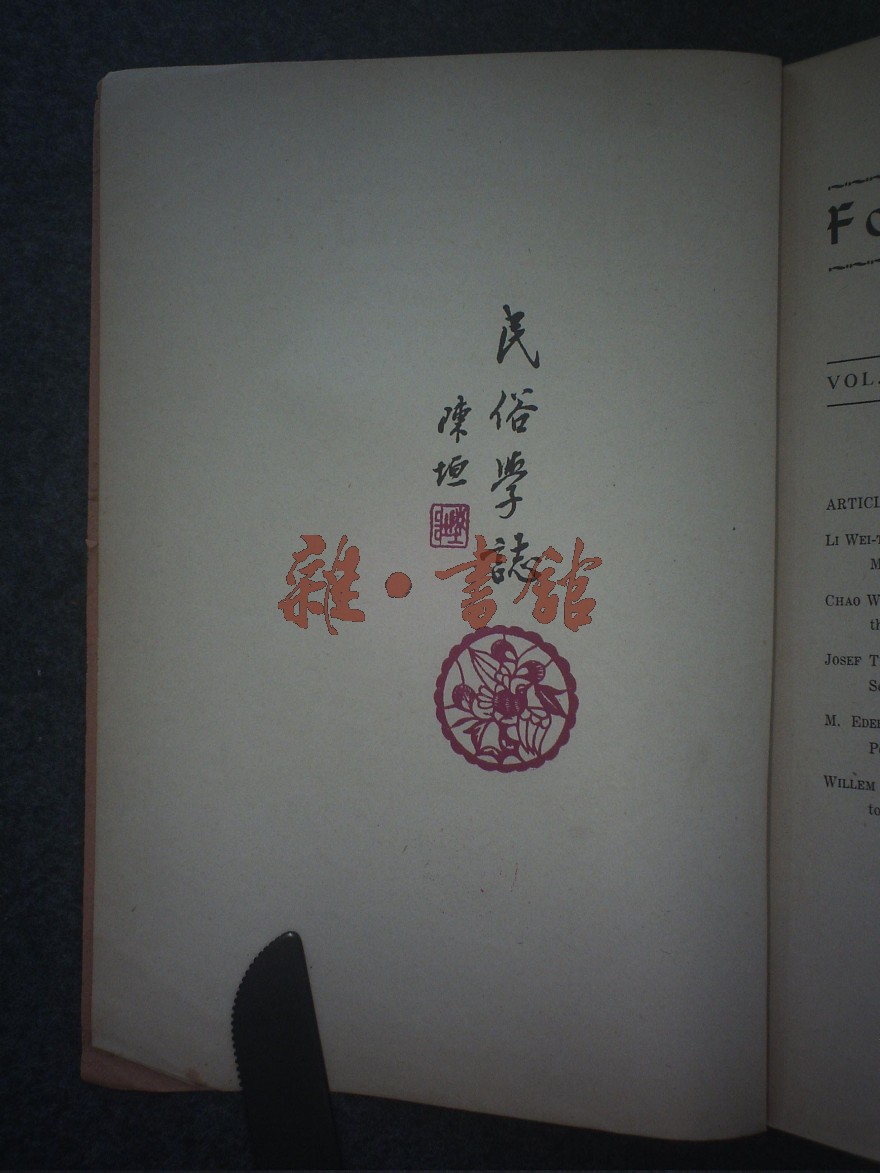 民俗學誌
陳垣
雜·書館
FO
VOL.
ARTICL
LI WEI-T
M
CHAO W
th
JOSEF T
So
M. EDER
P
WILLEM
to